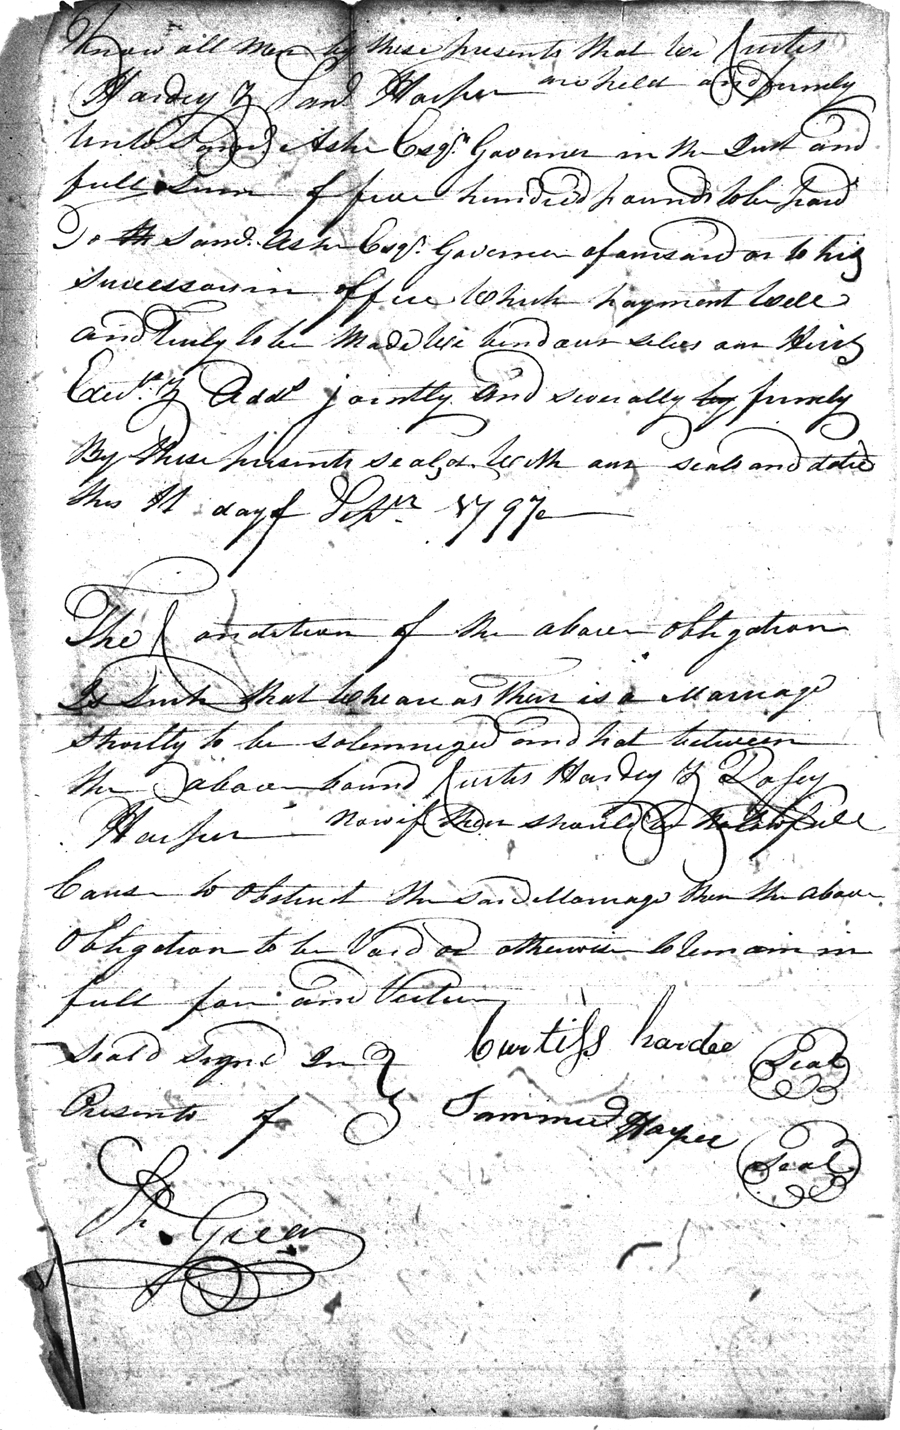 Know all Men by these presents that we Curtis
Hardey & Saml Harper are held and firmly
Unto Saml Ashe Esqr. Governer in the Just and
full Sum of five hundred pounds to be paid
To th Saml. Ashe Esqr. Governer aforisaid or to his
Successors in office which payment well
and Truly to be Made We bind our selves our Heirs
Exrs. & Adds jointly and severally by firmly
By these presents seald. With our seals and dated
this 11 day of Septr. 1797
The Condition of the above obligation
Is Such that wheare as their is a Marriage
shortly to be solemnized and had between
the above bound Curtis Hardey & Dosey
Harper Now if their should be no lawfull
Cause to obstruct the said Marriage then the above
Obligation to be Void or otherwise to Remain in
full fors and Virtue
Seald Signd In
Presents of
Curtiss hardee Seal
Sammuel Harper Seal
Th. Green